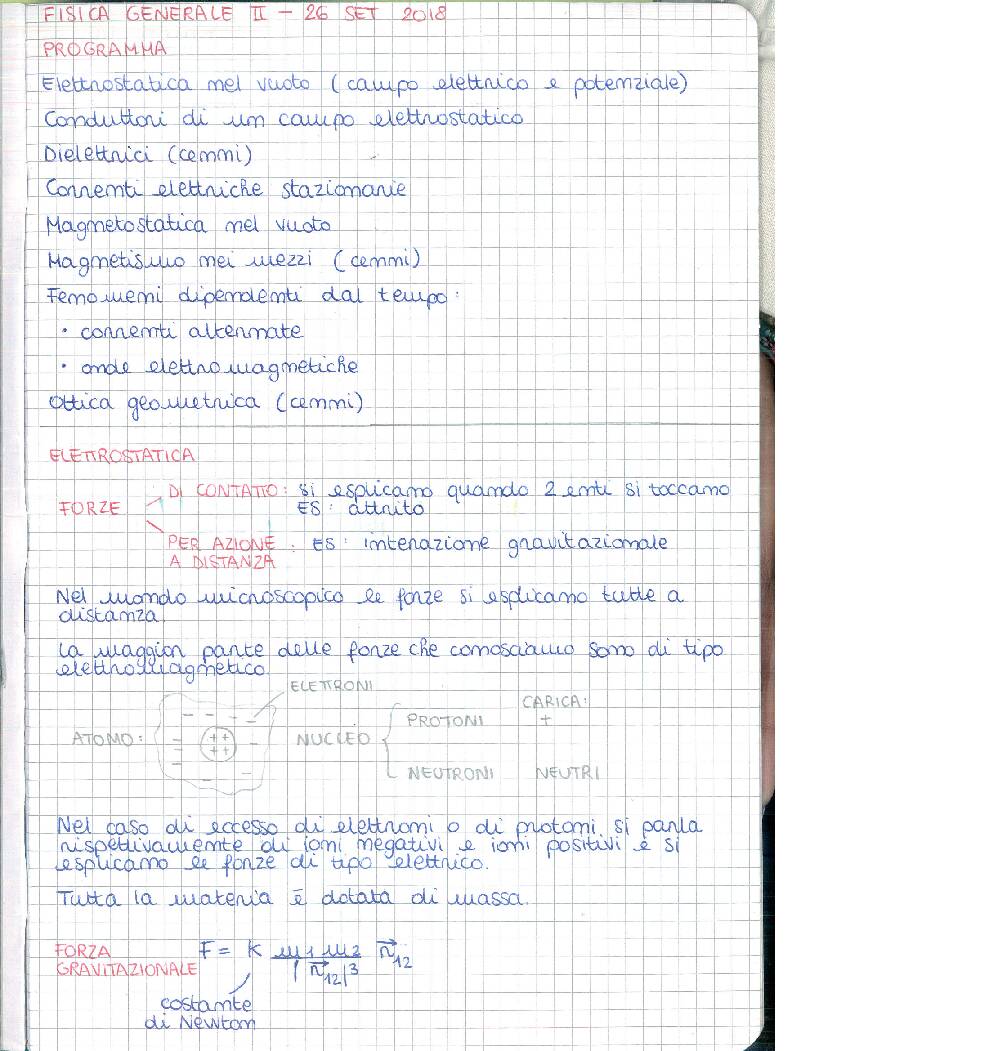 FISICA GENERALE II - 26 SET 2018
PROGRAMMA
Elettrostatica nel vuoto (campo elettrico e potenziale)
Conduttori di un campo elettrostatico
Dielettrici (cenni)
Correnti elettriche stazionarie
Magnetostatica nel vuoto
Magnetismo nei mezzi (cenni)
Fenomeni dipendenti dal tempo:
• correnti alternate
• onde elettromagnetiche
Ottica geometrica (cenni)
ELETTROSTATICA
FORZE
DI CONTATTO: si esplicano quando 2 enti si toccano
ES: attrito
PER AZIONE A DISTANZA: ES: interazione gravitazionale
Nel mondo microscopico le forze si esplicano tutte a
distanza.
La maggior parte delle forze che conosciamo sono di tipo
elettromagnetico.
ELETTRONI
CARICA:
ATOMO:
- - - -
++
++
NUCLEO
PROTONI +
NEUTRONI NEUTRI
Nel caso di eccesso di elettroni o di protoni, si parla
rispettivamente di ioni negativi e ioni positivi e si
esplicano le forze di tipo elettrico.
Tutta la materia è dotata di massa.
FORZA
GRAVITAZIONALE
F = K m1 m2 / |r⃗12|³ r⃗12
costante
di Newton